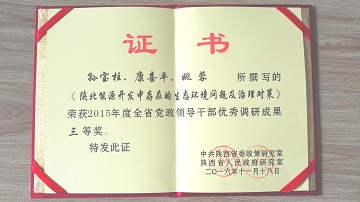 证书
孙宝柱、康喜平、姚蓉 所撰写的
《陕北能源开发中存在的生态环境问题及治理对策》
荣获2015年度全省党政领导干部优秀调研成果
三等奖。
特发此证
中共陕西省委政策研究室
陕西省人民政府研究室
二〇一六年十一月十八日